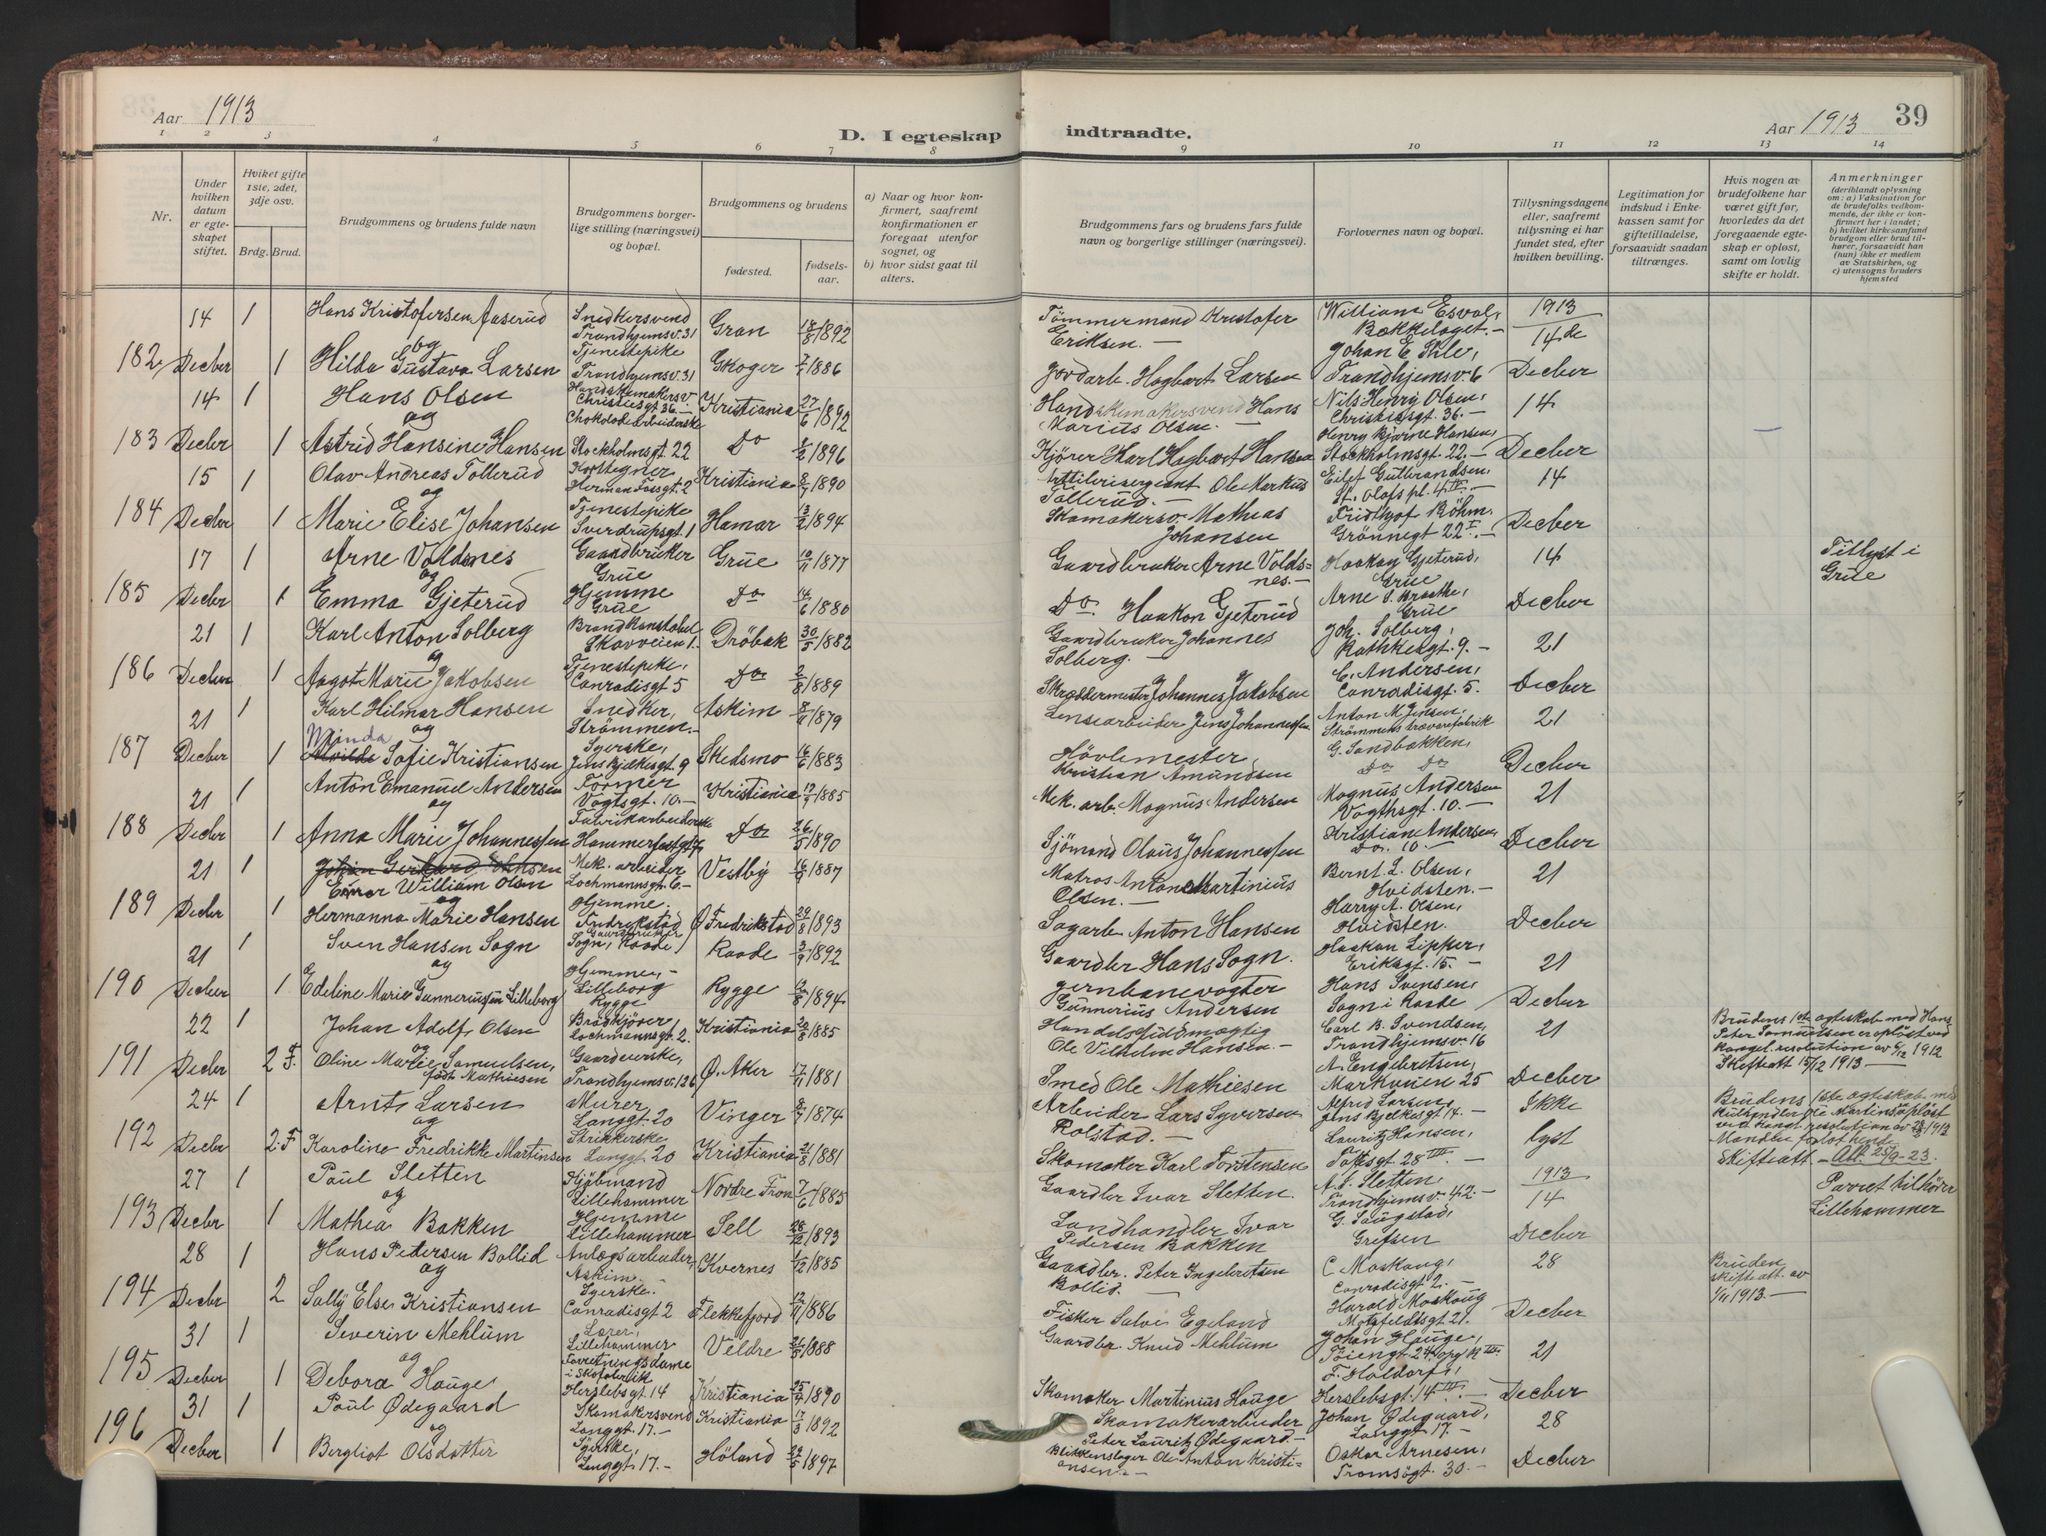 Aar 1913
D. I egteskap
indtraadte.
Aar 1913
39
1 2 3 4 5 6 7 8 9 10 11 12 13 14
Nr.
Under hvilken datum er egteskapet stiftet.
Hviket gifte 1ste, 2det, 3dje osv.
Brdg. Brud.
Brudgommens og brudens fulde navn
Brudgommens borgerlige stilling (næringsvei) og bopæl.
Brudgommens og brudens
fødested.
fødselsaar.
a) Naar og hvor konfirmert, saafremt konfirmationen er foregaat utenfor sognet, og
b) hvor sidst gaat til alters.
Brudgommens fars og brudens fars fulde navn og borgerlige stillinger (næringsvei).
Forlovernes navn og bopæl.
Tillysningsdagene eller, saafremt tillysning ei har fundet sted, efter hvilken bevilling.
Legitimation for indskud i Enkekassen samt for giftetilladelse, forsaavidt saadan tiltrænges.
Hvis nogen av brudefolkene har været gift før, hvorledes da det foregaaende egteskap er opløst, samt om lovlig skifte er holdt.
Anmerkninger
(deriblandt oplysning om: a) Vaksination for de brudefolks vedkommende, der ikke er konfirmert her i landet; b) hvilket kirkesamfund brudgom eller brud tilhører, forsaavidt han (hun) ikke er medlem av Statskirken, og c) utensogns bruders hjemsted
14 1 Hans Kristofersen Aaserud Snedkersvend Trondhjemsv. 31 Gran 18/8 1892 Tømmermand Kristofer Eriksen.— William Esval, Bækkelaget.— 1913 14de
182 Decber 1 og Hilda Gustava Larsen Tjenestepike Trondhjemsv. 31 Skoger 7/7 1886 Jordarb. Hagbart Larsen Johan E. Ihle, Trondhjemsv. 6 Decber
14 1 Hans Olsen Handskemakersv. Christiesgt 36.— Kristiania 27/6 1892 Handskemakersvend Hans Marius Olsen.— Nils Henry Olsen, Christiesgt. 36.— 14
183 Decber 1 og Astrid Hansine Hansen Chokoladearbeiderske Stockholmsgt 22 Do 1896 Kjører Karl Hagbart Hansen Henry Bjarne Hansen, Stockholmsgt 22.— Decber
15 1 Olav Andreas Tollerud Korttegner Herman Fossgt. 2 Kristiania 1890 Artillerisergeant Ole Markus Tollerud.— Eilef Gulbrandsen, St. Olafs pl. 4 14
184 Decber 1 og Marie Elise Johansen Tjenestepike Sverdrupsgt 1 Hamar 13/2 1894 Skomakersv. Mathias Johansen Fridthjof Böhm, Grønnegt 22 I.— Decber
17 1 Arne Voldsnes Gaardbruker Grue Grue 10/11 1877 Gaardbruker Arne Voldsnes.— Haakon Gjeterud, Grue 14 Tillyst i Grue
185 Decber 1 og Emma Gjeterud Hjemme Grue Do 14/6 1880 Do. Haakon Gjeterud Arne Grue Decber
21 1 Karl Anton Solberg Brandkonstabel Skovveien 1 Drøbak 30/5 1882 Gaardbruker Johannes Solberg.— Joh. Solberg, Rathkesgt. 9.— 21
186 Decber 1 og Aagot Marie Jakobsen Tjenestepike, Conradisgt 5 Do 2/8 1889 Skræddermester Johannes Jakobsen C. Andersen, Conradisgt. 5. Decber
21 1 Karl Hilmar Hansen Snedker, Strømmen.— Askim 1879 Lensearbeider Jens Johannessen Anton M. Jensen, Strømmens trævarefabrik 21
187 Decber 1 og Manda Sofie Kristiansen Syerske, Jens Bjelkesgt 9 Skedsmo 16/6 1883 Høvlemester Kristian Amundsen G. Sandbakken, Do Do Decber
21 1 Anton Emanuel Andersen Former Vogtsgt. 10.— Kristiania 19/9 1885 Mek. arb. Magnus Andersen Magnus Andersen Vogthsgt. 10.— 21
188 Decber 1 og Anna Marie Johannessen Fabrikarbeiderske Hammerfestgt 7 Do 26/5 1890 Sjømand Olaus Johannessen Kristian Andersen, Do. 10.— Decber
21 1 Johan Gerhard Hansen Einar William Olsen Mek. arbeider Lochmannsgt 6.— Vestby 1887 Matros Anton Martinius Olsen.— Bernt L. Olsen, Hvidsten.— 21
189 Decber 1 og Hermanna Marie Hansen Hjemme. Fredrikstad Ø Fredrikstad 29/8 1893 Sagarb. Anton Hansen Harry A. Olsen, Hvidsten. Decber
21 1 Sven Hansen Sogn Gaardbruker Sogn, Raade Raade 3/9 1892 Gaardbr Hans Sogn. Haakon Lipper, Eriksgt. 15.— 21
190 Decber 1 og Edeline Marie Gunneriussen Lilleborg Hjemme,— Lilleborg Rygge Rygge 1894 Jernbanevogter Gunnerius Andersen Hans Svensen, Sogn i Raade Decber
22 1 Johan Adolf Olsen Brødkjører, Lochmannsgt. 2. Kristiania 20/8 1885 Handelsfuldmægtig Ole Vilhelm Hansen— Carl B. Svendsen, Trondhjemsv. 16 21 Brudens 1ste egteskab med Hans Peter Samuelsen er opløst ved kongel. resolution av 6/12 1912 Skifteatt 15/12 1913.—
191 Decber 2 F. og Oline Marie Samuelsen, født Mathiesen Gaardeierske, Trondhjemsv. 126 Ø. Aker 17/11 1881 Smed Ole Mathiesen A. Engebretsen, Markveien 25 Decber
24 1 Arnt Larsen Murer Langgt. 20 Vinger 8/7 1874 Arbeider Lars Syversen Rolstad.— Alfred Larsen, Jens Bjelkesgt 14.— Ikke Brudens 1ste egteskab med Ole Martins opløst ved kongl. resolution av 1913
192 Decber 2. F og Karoline Fredrikke Martinsen Strikkerske Langgt. 20 Kristiania 21/8 1881 Skomaker Karl Torstensen Lauritz Hansen, Toftesgt 28 III.— lyst Skifteatt—
27 1 Paul Sletten Kjøbmand Lillehammer Nordre Fron 7/6 1885 Gaardbr Ivar Sletten. A. S. Sletten, Trondhjemsv. 42.— 1913 14 Parret tilhører Lillehammer
193 Decber 1 og Mathea Bakken Hjemme Lillehammer Sell 28/12 1893 Landhandler Ivar Pedersen Bakken G. Saugstad, Grefsen Decber
28 1 Hans Petersen Bollid Anlægsarbeider, Askim.— Kvernes 1/12 1885 Gaardbr. Peter Ingebretsen Bollid.— C Moskaug, Conradisgt 2.— 28 Bruden skifteatt. av 1/11 1913.—
194 Decbr 2 og Sally Else Kristiansen Syerske.— Conradisgt 2 Flekkefjord 12/11 1886 Fisker Salve Egeland Harald Moskaug Motzfeldtsgt 21. Decber
31 1 Severin Mehlum Lærer, Lillehammer Veldre 1888 Gaardbr. Knud Mehlum Johan Hauge, Tøiengt 24 21
195 Decber 1 og Debora Hauge Forretningsdame Herslebsgt 14 Kristiania 25/4 1890 Skomaker Martinius Hauge F. Holdorf, Herslebsgt. 14 III.— Decber
31 1 Paul Ødegaard Skomakersvend Langgt. 17.— Kristiania 17/3 1892 Skomakerarbeider Peter Lauritz Ødegaard— Johan Ødegaard, Langgt 17.— 28
196 Decber 1 og Bergliot Olsdatter Syerske, Langgt 17.— Høland 1897 Blikkenslager Ole Anton Kristiansen.— Oskar Arnesen, Tromsøgt. 30.— Decber